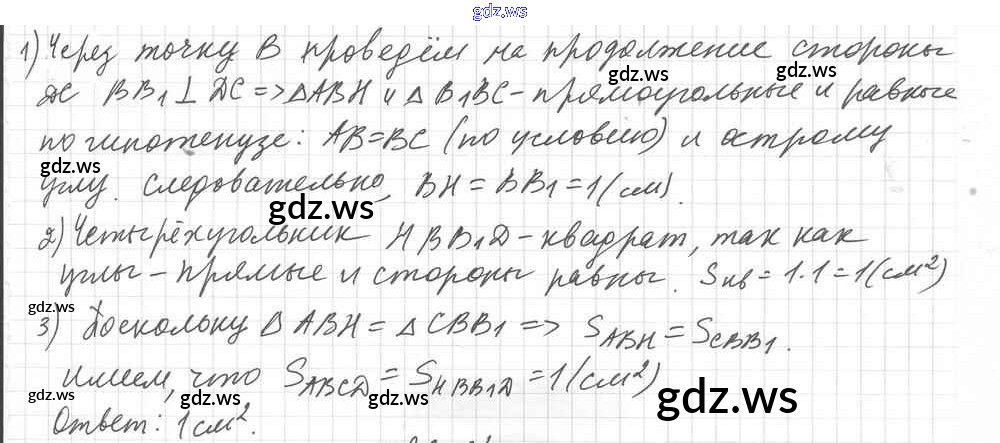 gdz.ws
1) Через точку В проведём на продолжение стороны
gdz.ws gdz.ws
DC BB1 ⊥ DC => △ABH и △B1BC - прямоугольные и равные
по гипотенузе: AB=BC (по условию) и острому
gdz.ws gdz.ws
углу. Следовательно, BH = BB1 = 1 (см).
gdz.ws
2) Четырёхугольник HBB1D - квадрат, так как
gdz.ws
углы - прямые и стороны равны. Sкв = 1·1 = 1 (см²)
gdz.ws
3) Поскольку △ABH = △CBB1 => SABH = SCBB1.
gdz.ws
Имеем, что SABCD = SHBB1D = 1 (см²)
gdz.ws gdz.ws gdz.ws gdz.ws
Ответ: 1 см².